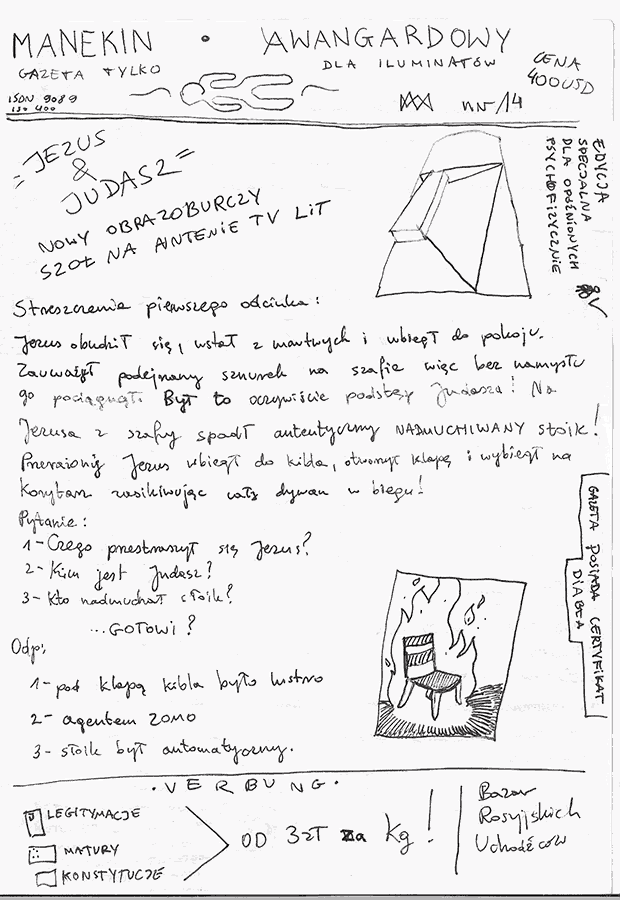 MANEKIN • AWANGARDOWY
GAZETA TYLKO DLA ILUMINATÓW
CENA
400USD
ISDN 9089
ISO 400
nr 14
= JEZUS
&
JUDASZ =
NOWY OBRAZOBURCZY
SZOŁ NA ANTENIE TV LIT
EDYCJA
SPECJALNA
DLA OPÓŹNIONYCH
PSYCHOFIZYCZNIE
Streszczenie pierwszego odcinka:
Jezus obudził się, wstał z martwych i wbiegł do pokoju.
Zauważył podejrzany sznurek na szafie więc bez namysłu
go pociągnął. Był to oczywiście podstęp Judasza! Na
Jezusa z szafy spadł autentyczny NADMUCHIWANY słoik!
Przerażony Jezus wbiegł do kibla, otworzył klapę i wybiegł na
Korytarz zasikiwując cały dywan w biegu!
Pytanie:
1- Czego przestraszył się Jezus?
2- Kim jest Judasz?
3- Kto nadmuchał słoik?
...GOTOWI?
Odp:
1- pod klapą kibla było lustro
2- agentem ZOMO
3- słoik był automatyczny.
GAZETA POSIADA CERTYFIKAT
DIABŁA
· VERBUNG ·
LEGITYMACJE
MATURY
KONSTYTUCJE
OD 3 ZŁ za Kg!
Bazar
Rosyjskich
Uchodźców